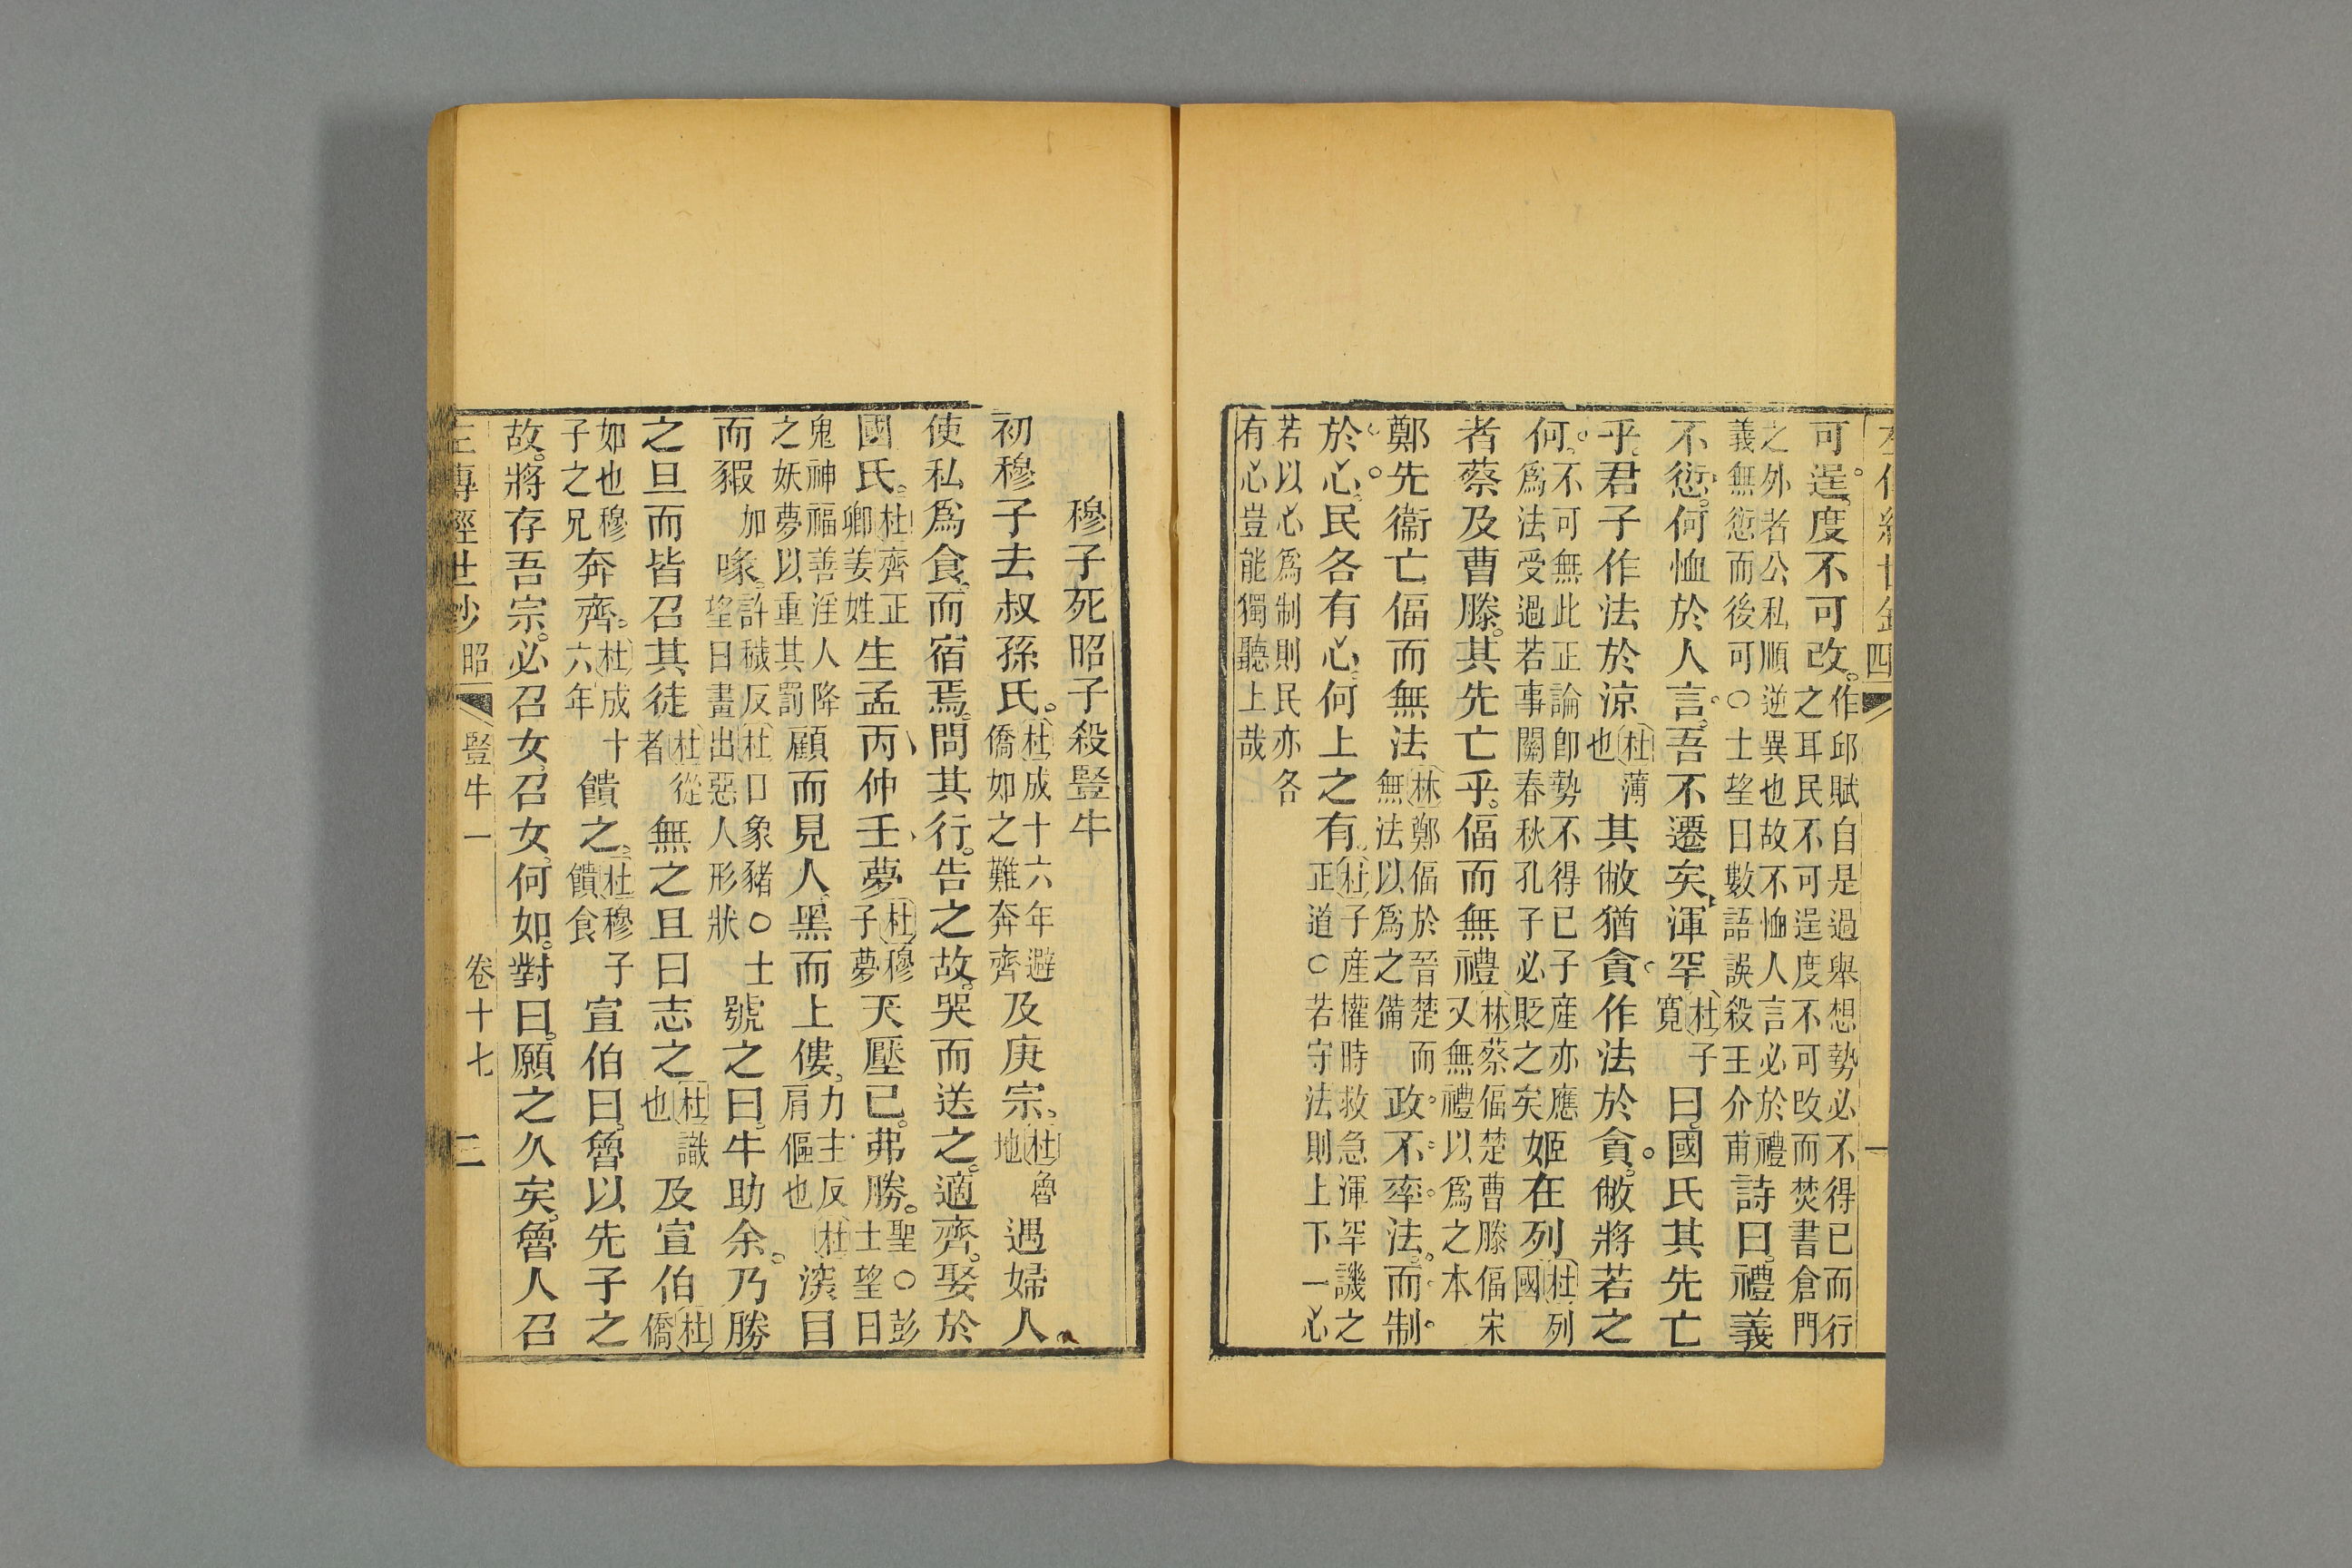 四 一
可逞。度不可改。作邱賦自是過舉想勢必不得已而行之耳民不可逞度不可改而焚書倉門
之外者公私順逆異也故不恤人言必於禮義無愆而後可○士望曰數語誤殺王介甫詩曰。禮義
不愆。何恤於人言。吾不遷矣。渾罕杜子寬曰。國氏其先亡
乎。君子作法於涼杜薄也其敝猶貪。作法於貪。敝將若之
何。不可無此正論卽勢不得已子産亦應爲法受過若事關春秋孔子必貶之矣姬在列杜列國
者蔡及曹滕。其先亡乎。偪而無禮林蔡偪楚曹滕偪宋又無禮以爲之本
鄭先衞亡偪而無法林鄭偪於晉楚而無法以爲之備政。不率法。而制
於心。民各有心。何上之有。杜子産權時救急渾罕譏之正道○若守法則上下一心
若以心爲制則民亦各有心豈能獨聽上哉
穆子死昭子殺豎牛
初穆子去叔孫氏。杜成十六年避僑如之難奔齊及庚宗。杜魯地遇婦人。
使私爲食。而宿焉。問其行。告之故。哭而送之。適齊。娶於
國氏。杜齊正卿姜姓生孟丙仲壬夢杜穆子夢天壓已。弗勝。聖○彭士望曰
鬼神福善淫人降之妖夢以重其罰顧而見人黑而上僂。力主反杜肩傴也深目
而豭加喙。許穢反杜口象豬○士望曰畫出惡人形狀號之曰。牛助余。乃勝
之旦而皆召其徒杜從者無之且曰志之杜識也及宣伯杜僑
如也穆子之兄奔齊。杜成十六年饋之。杜穆子饋食宣伯曰。魯以先子之
故。將存吾宗。必召女。召女。何如。對曰。願之久矣。魯人召
左傳經世鈔 昭 豎牛一 卷十七 三